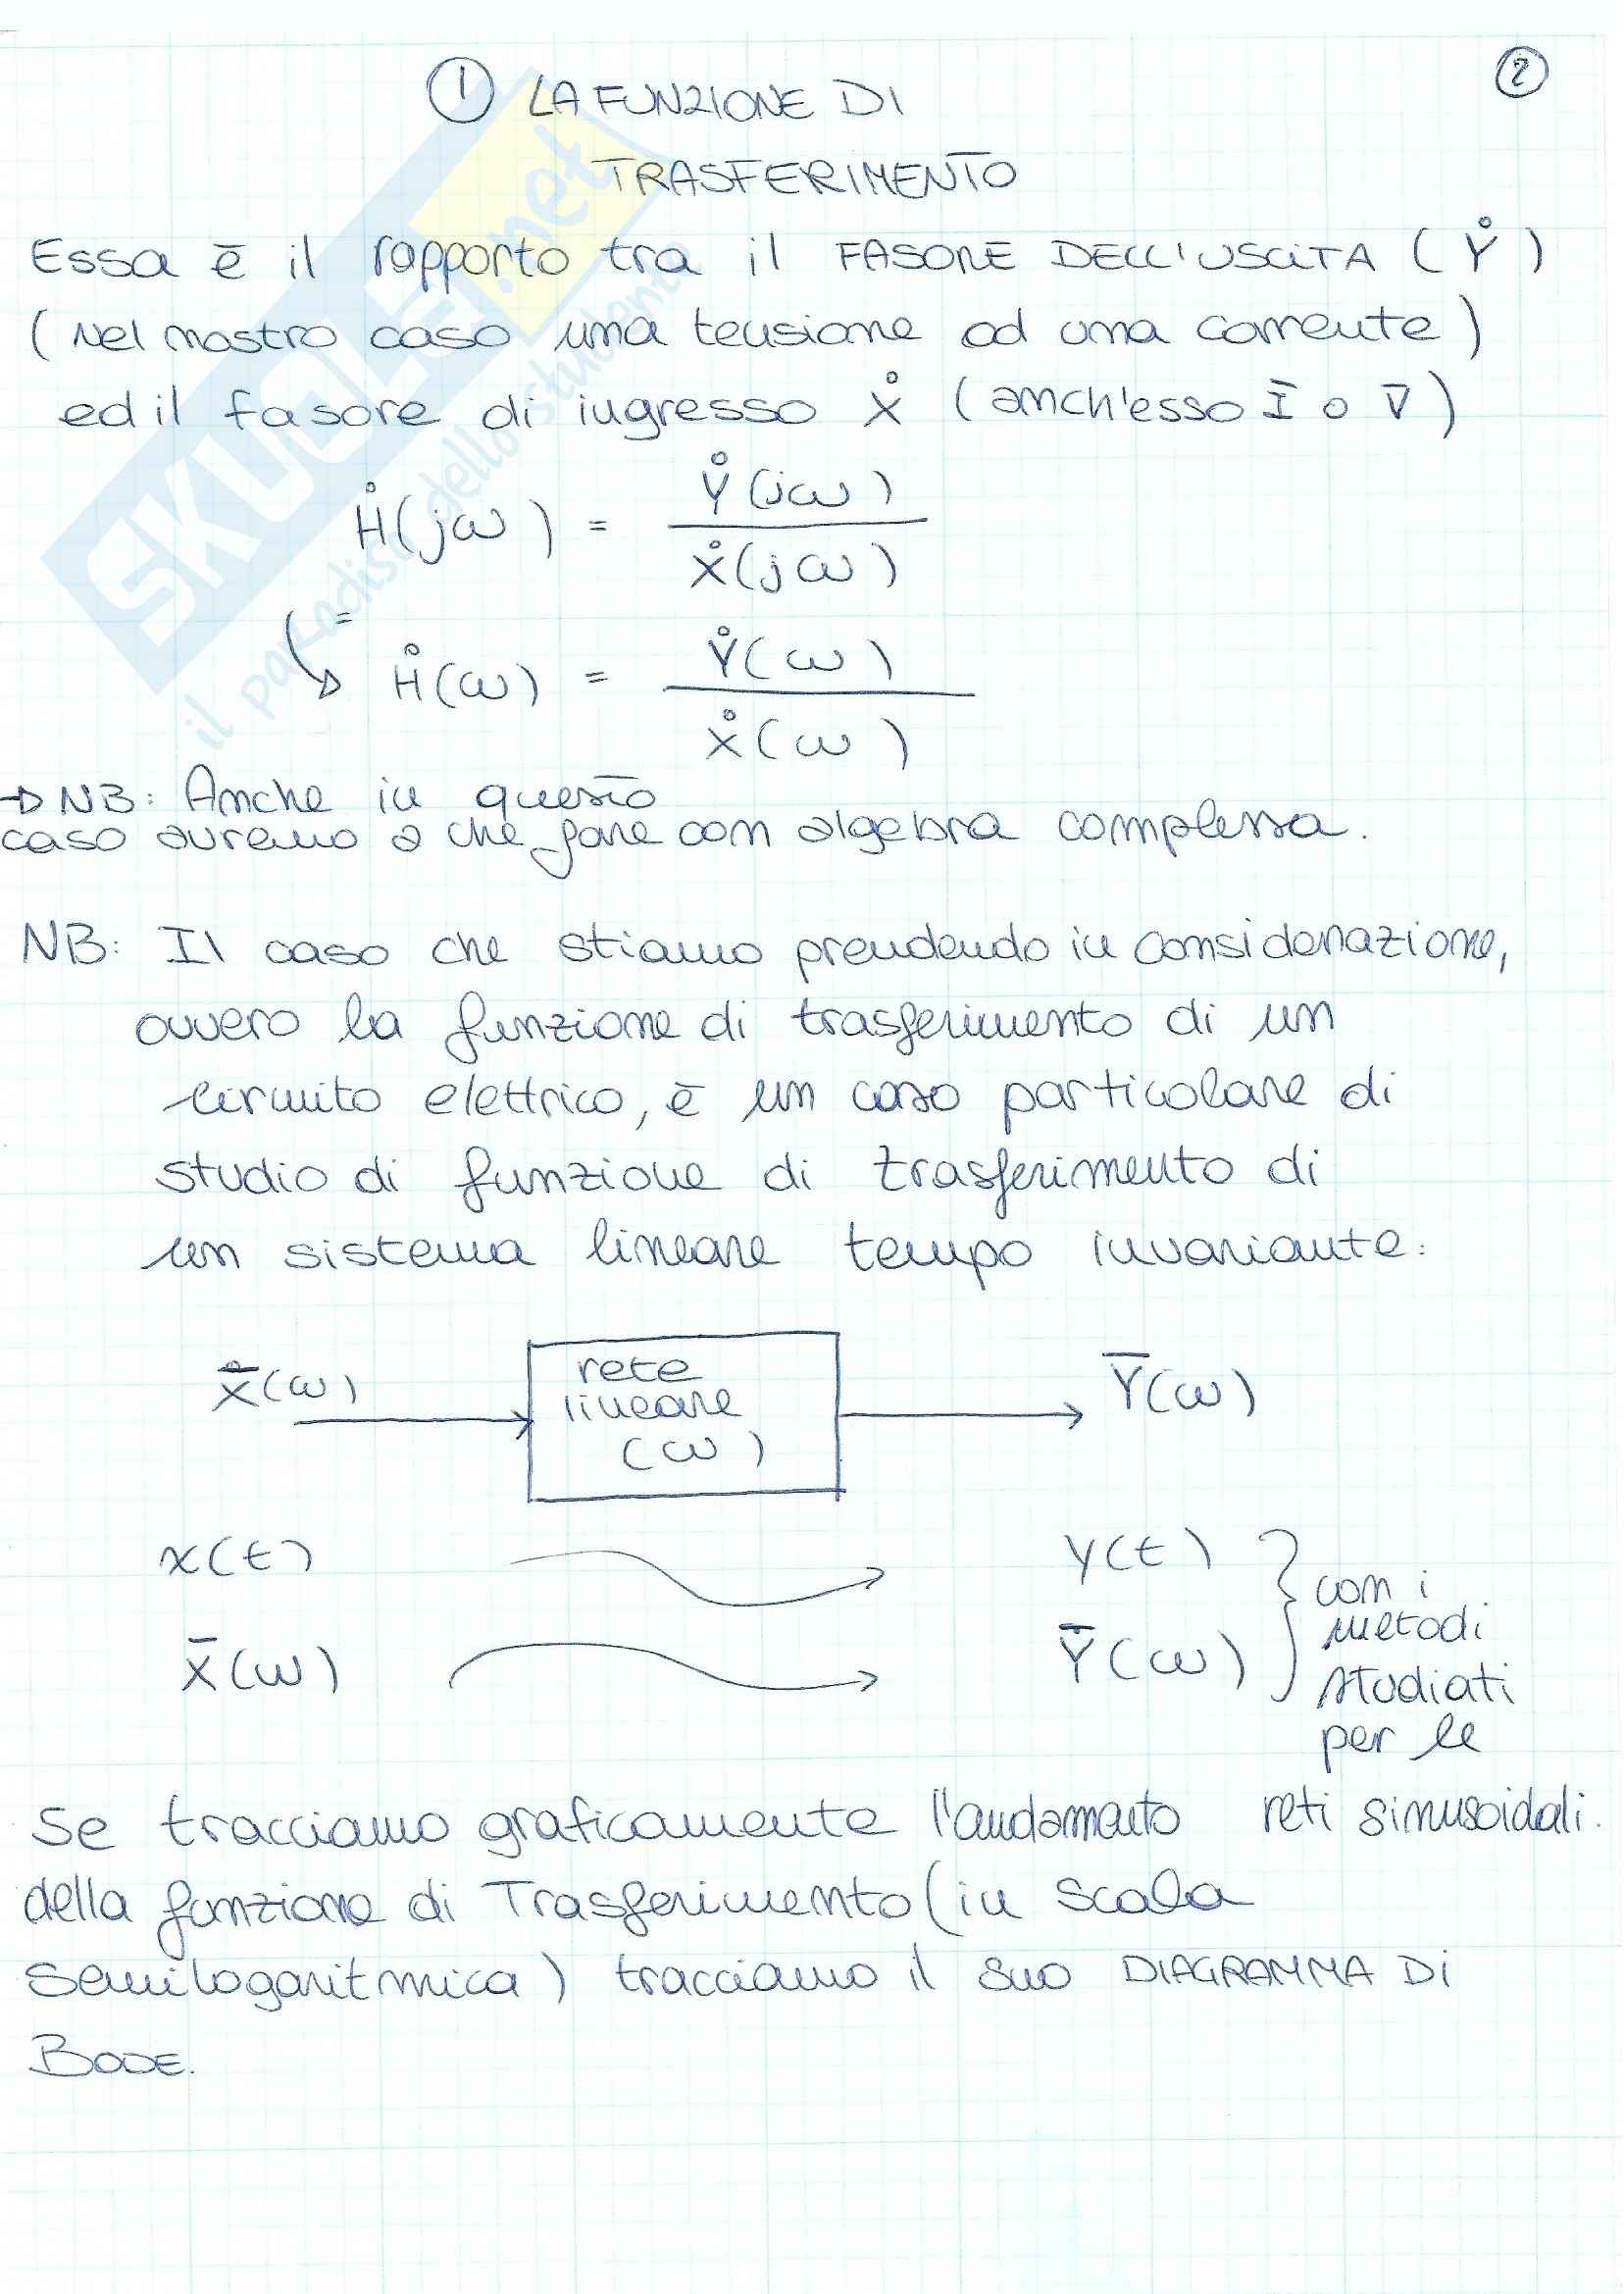 ① LA FUNZIONE DI
②
TRASFERIMENTO
Essa è il rapporto tra il FASORE DELL'USCITA (Y̊)
(Nel nostro caso una tensione od una corrente)
ed il fasore di ingresso X̊ (anch'esso Ī o V̄)
H̊(jω) = Y̊(jω) / X̊(jω)
=
↳ H̊(ω) = Y̊(ω) / X̊(ω)
→ NB: Anche in questo
caso avremo a che fare con algebra complessa.
NB: Il caso che stiamo prendendo in considerazione,
ovvero la funzione di trasferimento di un
circuito elettrico, è un caso particolare di
studio di funzione di trasferimento di
un sistema lineare tempo invariante:
X̄(ω) → rete → Ȳ(ω)
lineare
(ω)
x(t) → y(t)
X̄(ω) → Ȳ(ω)
} con i
metodi
studiati
per le
reti sinusoidali.
Se tracciamo graficamente l'andamento
della funzione di Trasferimento (in scala
semilogaritmica) tracciamo il suo DIAGRAMMA Di
BODE.
SKUOLA.net
il paradiso dello studente